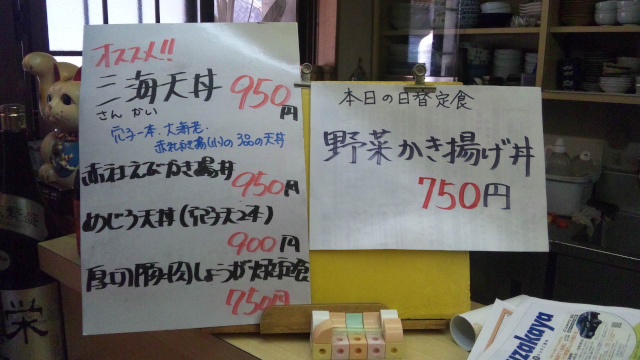 オススメ!!
三海天丼 950円
さん かい
穴子一本、大海老、
赤社えびかき揚丼
950円
めじろ天丼(穴子天2本)
900円
厚切豚肉しょうが焼定食
750円
本日の日替定食
野菜かき揚げ丼
750円
栄
zakaya